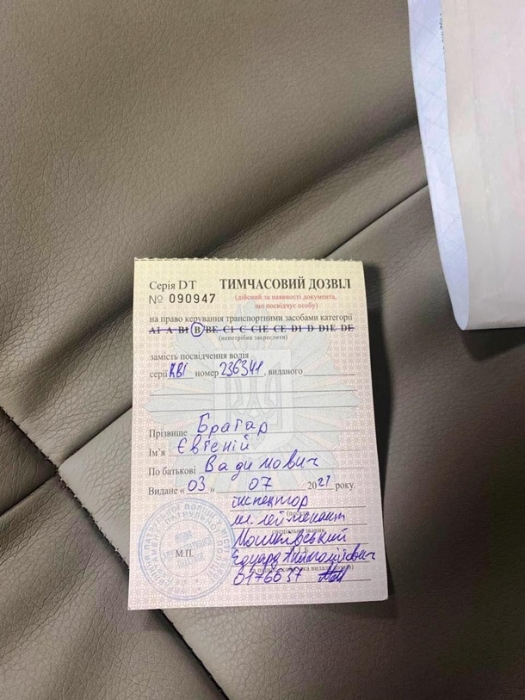 Серія DT ТИМЧАСОВИЙ ДОЗВІЛ
№ 090947 (дійсний за наявності документа,
що посвідчує особу)
на право керування транспортними засобами категорії
A1 A B1 B BE C1 C C1E CE D1 D D1E DE
(непотрібне закреслити)
замість посвідчення водія
серії номер 236341, виданого
Прізвище Братар
Ім'я Євгеній
По батькові Вадимович
Видане « 03 » 07 2021 року.
інспектор
лейтенант
М.П.
0176637